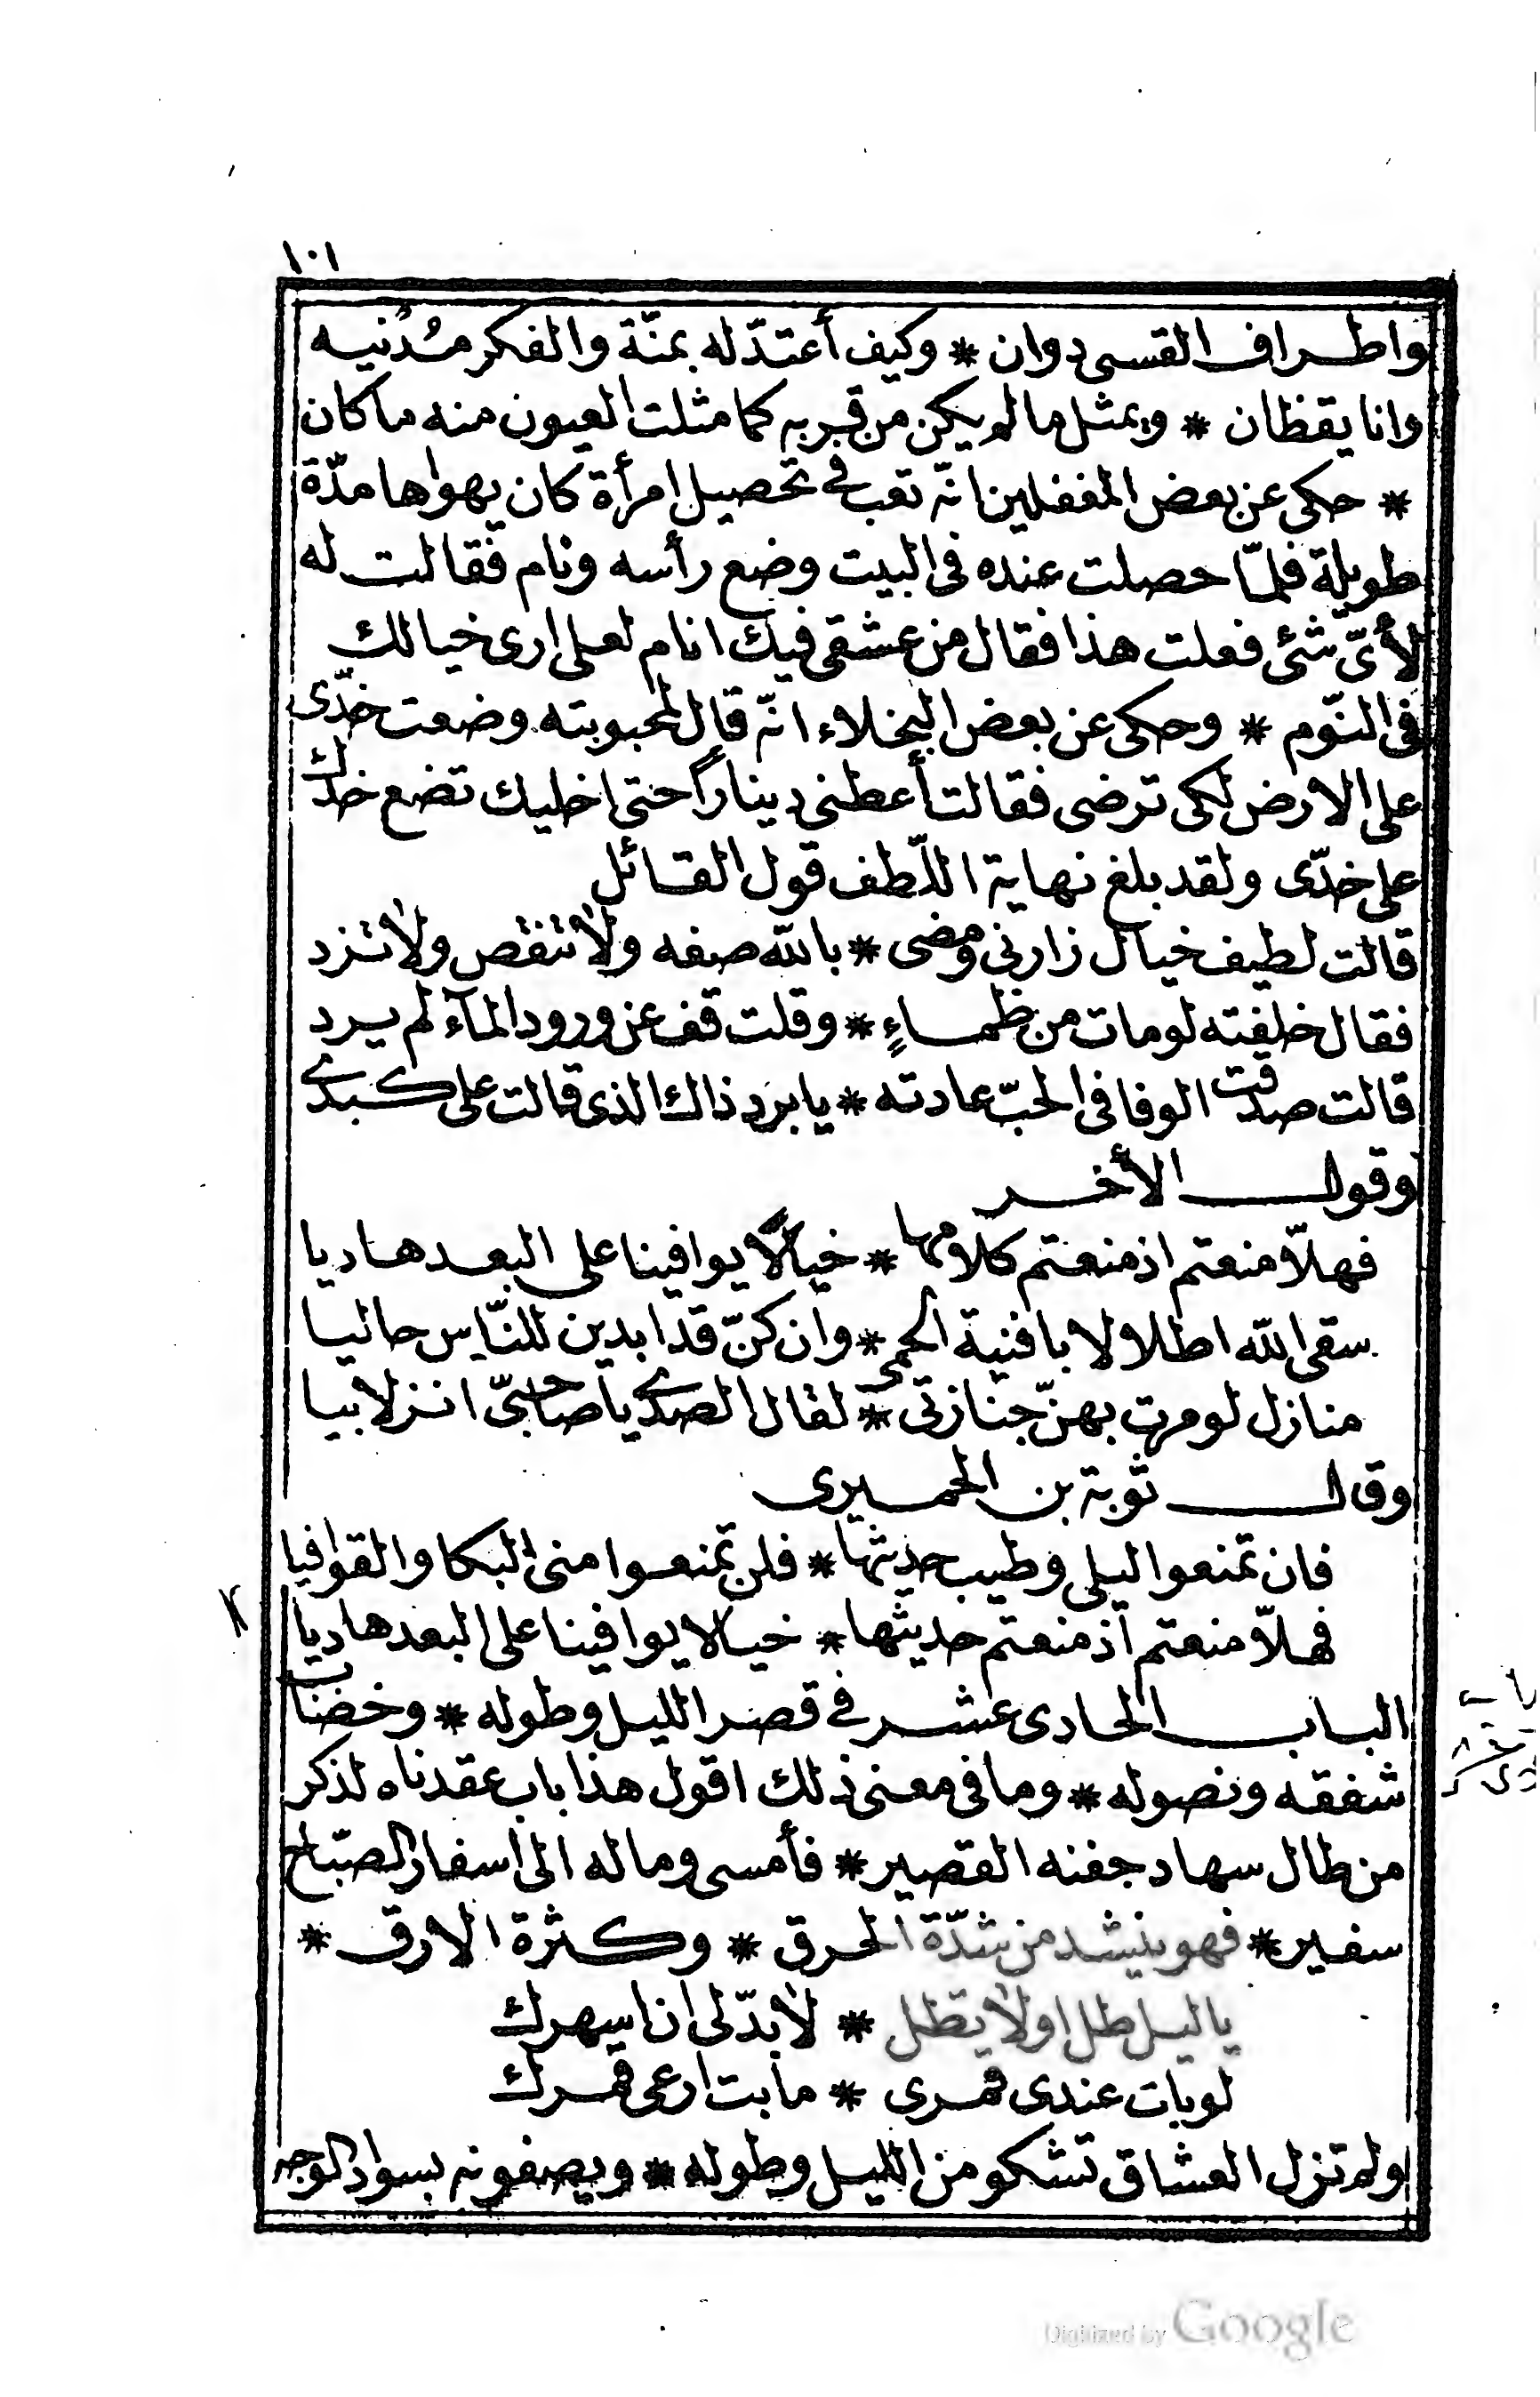 ١٠١
واطراف القسى دوان * وكيف أعتدّ له بمنّة والفكر مُدنيه
وانا يقظان * ويمثل ما لم يكن من قربه كما مثلت العيون منه ما كان
* حكى عن بعض المغفلين انّه تعب في تحصيل امرأة كان يهواها مدّة
طويلة فلمّا حصلت عنده فى البيت وضع رأسه ونام فقالت له
لأىّ شئ فعلت هذا فقال من عشقى فيك انام لعلى ارى خيالك
فى النّوم * وحكى عن بعض البخلاء انّه قال لمحبوبته وضعت خدّى
على الارض لكى ترضى فقالت أعطنى ديناراً حتى اخليك تضع خدّك
على خدّى ولقد بلغ نهاية اللّطف قول القائل
قالت لطيف خيال زارنى ومضى * بالله صفه ولا تنقص ولا تزد
فقال خلفته لو مات من ظماءٍ * وقلت قف عن ورود المآء لم يرد
قالت صدقت الوفا فى الحبّ عادته * يا برد ذاك الذى قالت على كبدى
وقول الأخر
فهلّا منعتم اذ منعتم كلامها * خيالًا يوافينا على البعد هاديا
سقى الله اطلالا بافنية الحمى * وان كنّ قد ابدين للنّاس حاليا
منازل لو مرت بهنّ جنازتى * لقال الصدى يا صاحبىّ انزلا بيا
وقال توبة بن الحميرى
فان تمنعوا ليلى وطيب حديثها * فلن تمنعوا منى البكا والقوافيا
فهلّا منعتم اذ منعتم حديثها * خيالا يوافينا على البعد هاديا
الباب الحادى عشر في قصر الليل وطوله * وخضاب
شفقه ونصوله * وما فى معنى ذلك اقول هذا باب عقدناه لذكر
من طال سهاد جفنه القصير * فأمسى وماله الى اسفار الصّباح
سفير * فهو ينشد من شدّة الحرق * وكثرة الارق *
يا ليل طل او لا تطل * لا بدّ لى ان اسهرك
لو بات عندى قمرى * ما بت ارعى قمرك
ولم تزل العشاق تشكو من الليل وطوله * ويصفونه بسواد الوجه
Digitized by Google